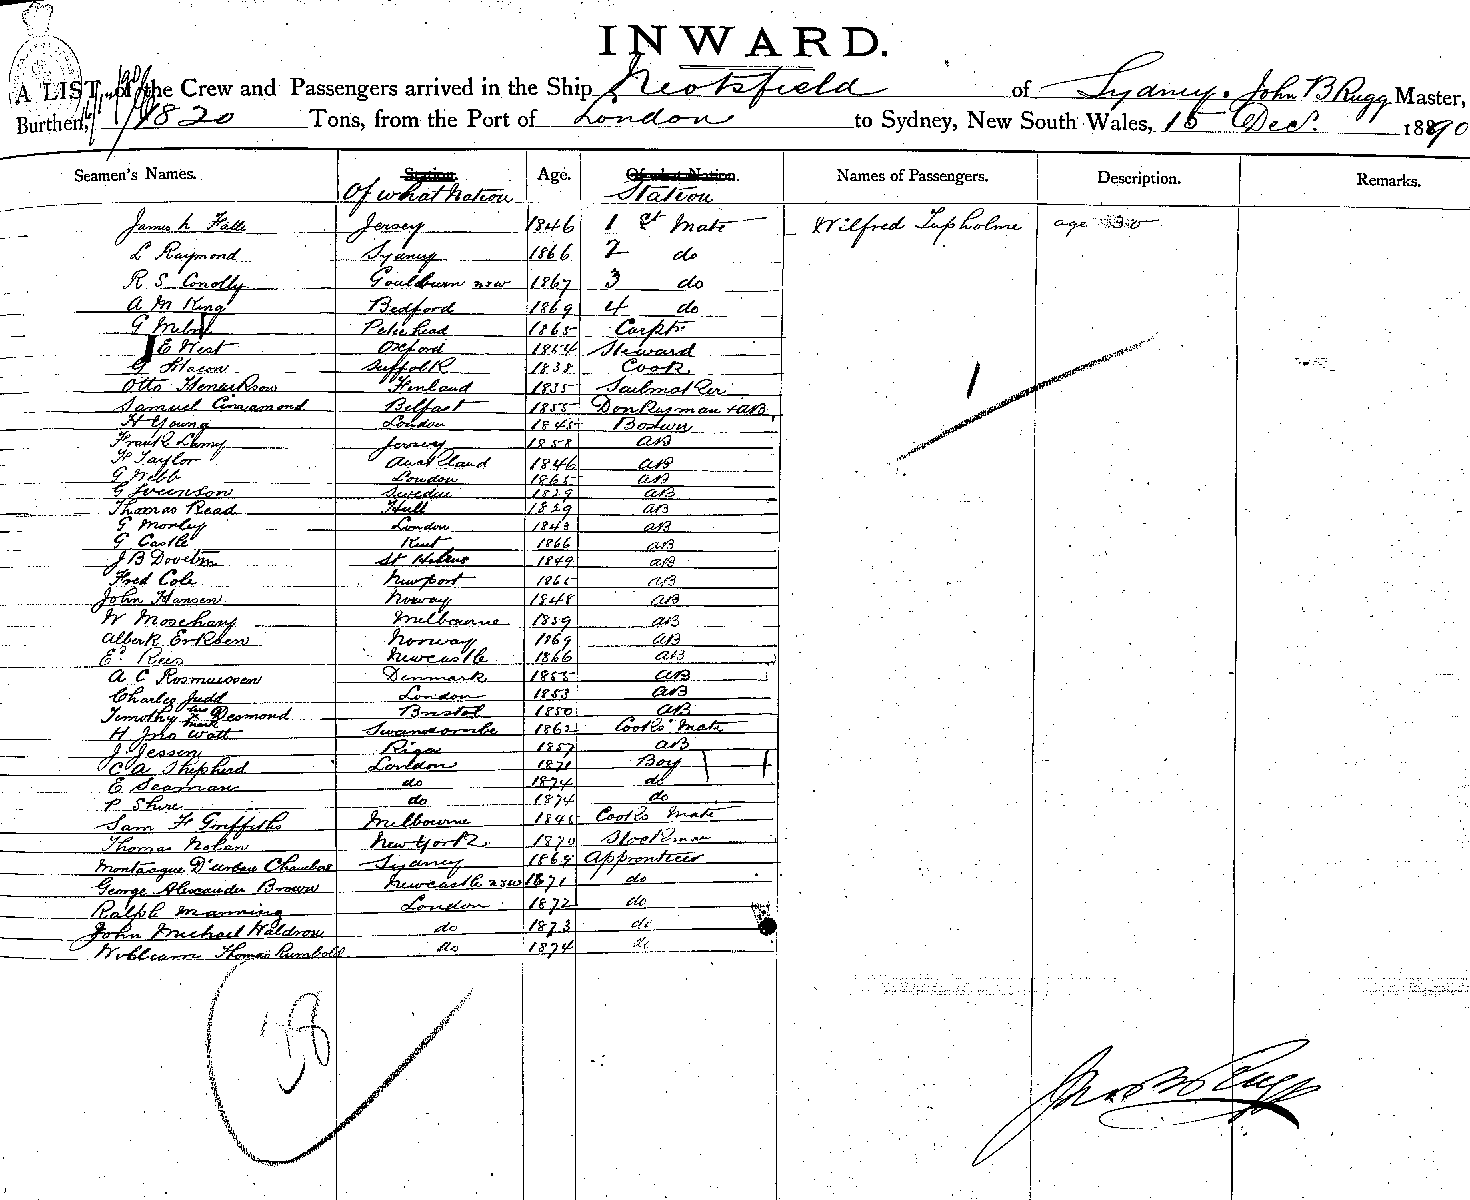 INWARD.
A LIST of the Crew and Passengers arrived in the Ship Neotsfield of Sydney. John B Rugg Master,
Burthen, 1820 Tons, from the Port of London to Sydney, New South Wales, 15 Dec. 1890
Seamen's Names. Station Age. Of what Nation. Names of Passengers. Description. Remarks.
Of what Nation Station
James h Falle Jersey 1846 1 st Mate Wilfred Tupholme age 30
L Raymond Sydney 1866 2 do
R S Conolly Goulburn nsw 1867 3 do
A M King Bedford 1869 4 do
G Milne Peterhead 1865 Carptr
E West Oxford 1854 Steward
G Stacon Suffolk 1838 Cook
Otto Henrikson Finland 1835 Sailmaker
Samuel Cinnamond Belfast 1855 Donkeyman + AB
H Young London 1845 Boswn
Frank Lamy Jersey 1858 AB
H Taylor Auckland 1846 AB
G Webb London 1865 AB
G Svenson Sweden 1829 AB
Thomas Read Hull 1829 AB
G Morley London 1843 AB
G Castle Kent 1866 AB
J B Doveton St Helens 1849 AB
Fred Cole Newport 1865 AB
John Hansen Norway 1848 AB
W Moschany Melbourne 1859 AB
Albert Erksen Norway 1869 AB
Ed Rees Newcastle 1866 AB
A C Rosmussen Denmark 1855 AB
Charles Judd London 1853 AB
Timothy his mark Desmond Bristol 1850 AB
H Jno Watt Swanscombe 1862 Cooks Mate
J Jessen Riga 1857 AB
C A Shepherd London 1871 Boy
E Seaman do 1874 do
P Shire do 1874 do
Sam H Griffiths Melbourne 1845 Cooks Mate
Thomas Nolan New York 1870 Stockman
Montague D'urban Chambers Sydney 1869 Apprentice
George Alexander Brown Newcastle nsw 1871 do
Ralph Manning London 1872 do
John Michael Waldron do 1873 do
William Thomas Rumbold do 1874 do
38
Jno B Rugg